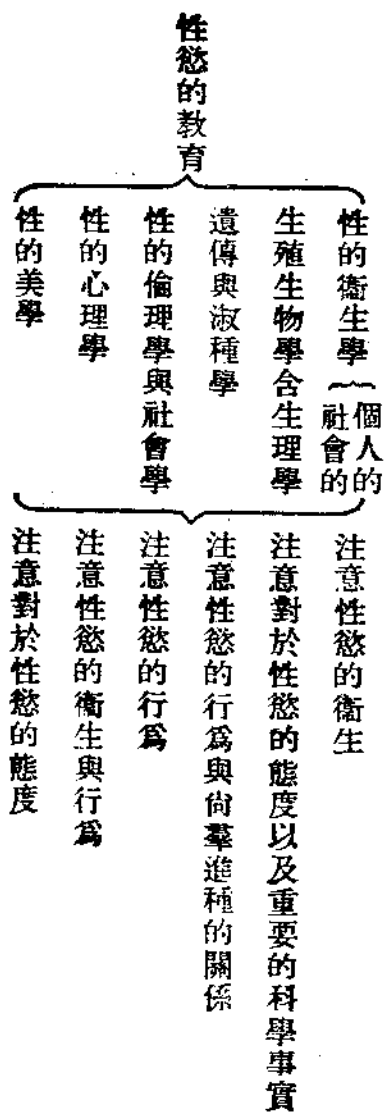 性慾的教育
性的衞生學
個人的
社會的
生殖生物學含生理學
遺傳與淑種學
性的倫理學與社會學
性的心理學
性的美學
注意性慾的衞生
注意對於性慾的態度以及重要的科學事實
注意性慾的行爲與尙羣進種的關係
注意性慾的行爲
注意性慾的衞生與行爲
注意對於性慾的態度